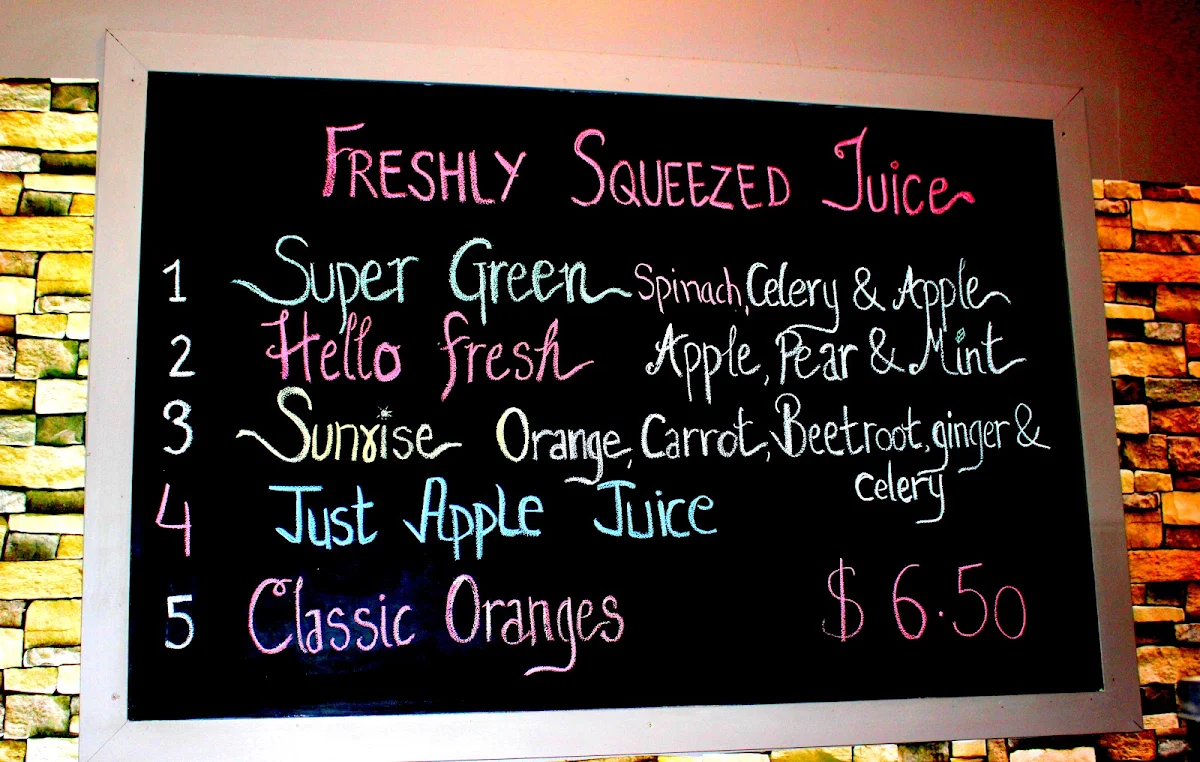 FRESHLY SQUEEZED Juice
1 Super Green Spinach, Celery & Apple
2 Hello fresh Apple, Pear & Mint
3 Sunrise Orange, Carrot, Beetroot, ginger &
celery
4 Just Apple Juice
5 Classic Oranges $ 6.50